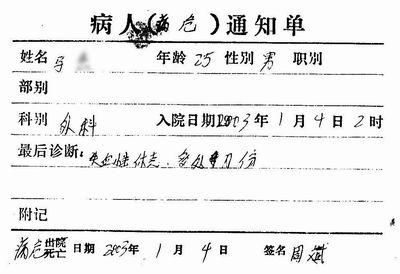 病人(病危)通知单
姓名 马 年龄 25 性别 男 职别
部别
科别 外科 入院日期2003年1月4日2时
最后诊断:失血性休克、多处刀伤
附记
病危 出院 死亡 日期 2003年 1月 4日 签名 周斌